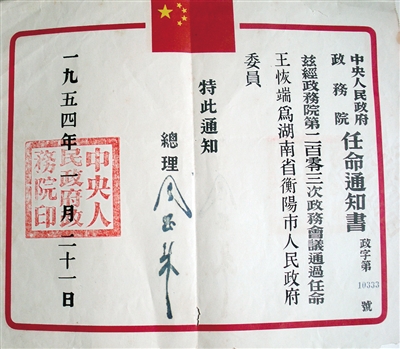 中央人民政府
政務院
任命通知書
政字第10333號
茲經政務院第二百零三次政務會議通過任命
王恢端爲湖南省衡陽市人民政府
委員
特此通知
總理 周恩來
一九五四年一月二十一日
中央人
民政府政
務院印